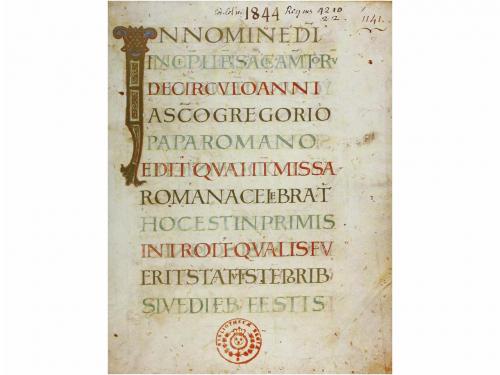 1844 Regius 4210
2.2.
1141.
IN NOMINE DNI
INCP LIB SACAMTORV
DE CIRCVLO ANNI
A SCO GREGORIO
PAPA ROMANO
EDIT QVALIT MISSA
ROMANA CELEBRAT
HOC EST IN PRIMIS
INTROIT QVALIS FV
ERIT STATIS TEPORIB
SIVE DIEB FESTIS
BIBLIOTHECÆ REGIÆ